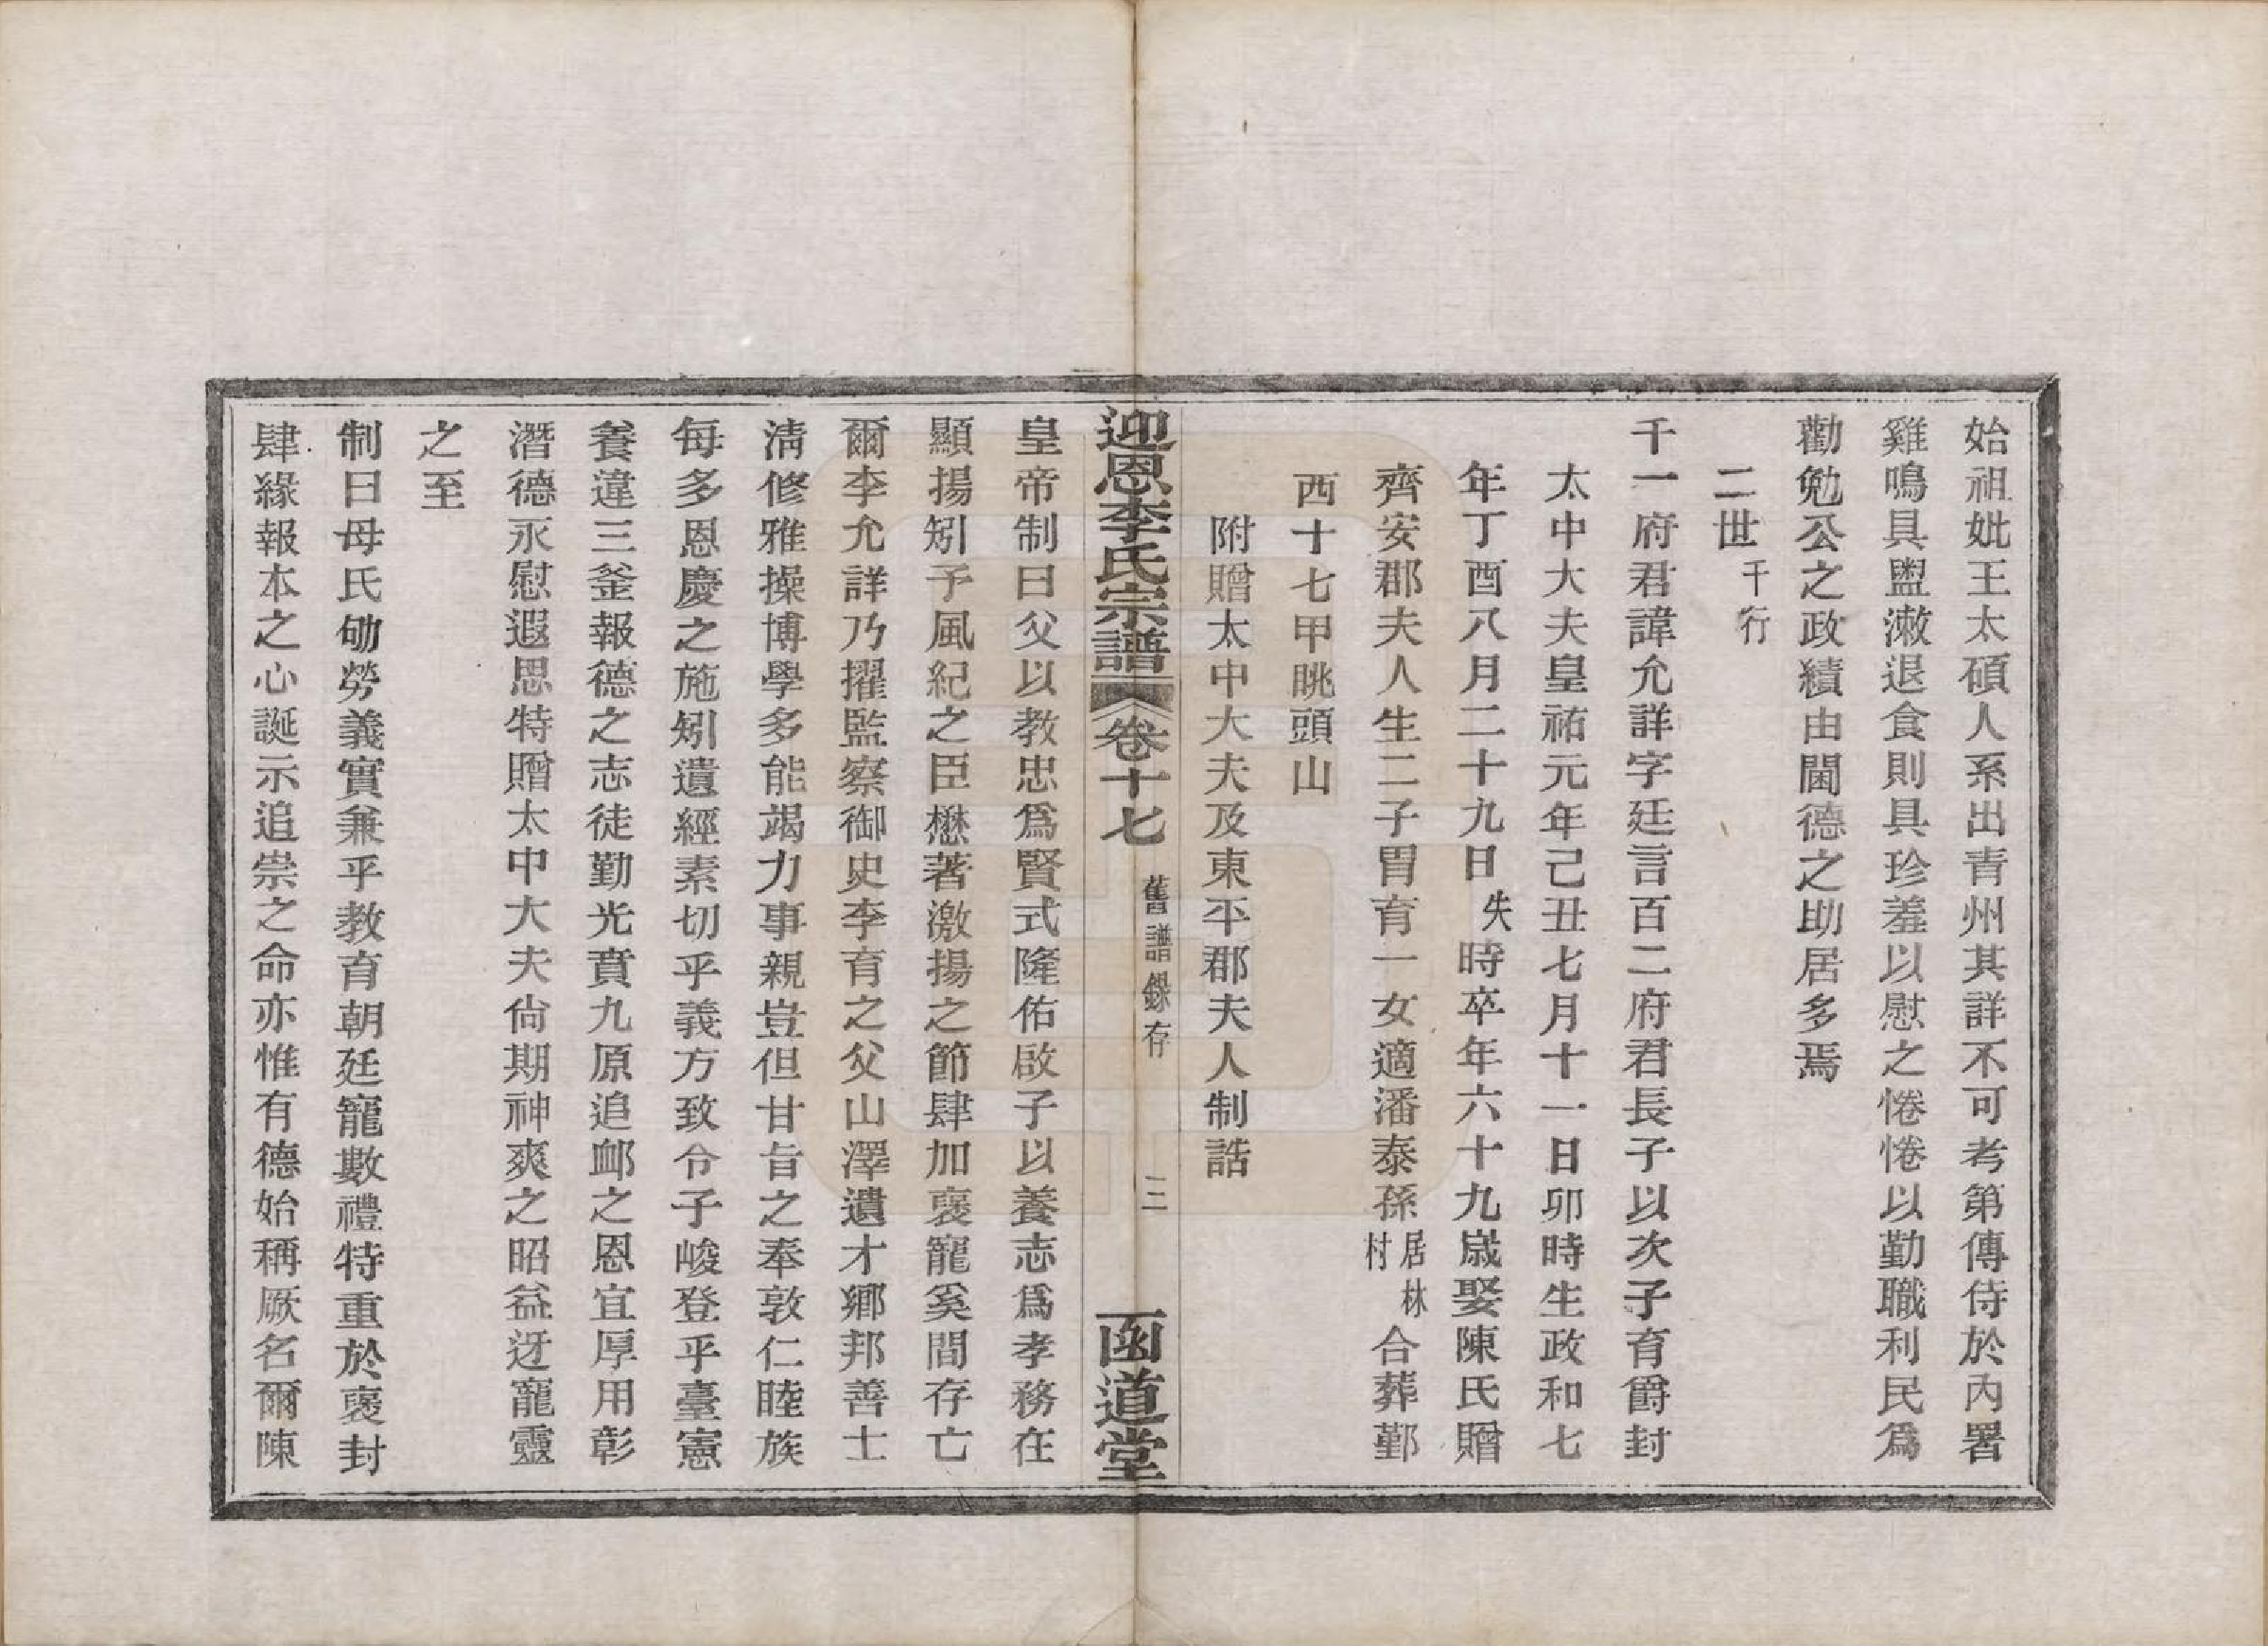 始祖妣王太碩人系出青州其詳不可考第傳侍於內署
雞鳴具盥漱退食則具珍羞以慰之惓惓以勤職利民爲
勸勉公之政績由閫德之助居多焉
二世千行
千一府君諱允詳字廷言百二府君長子以次子育爵封
太中大夫皇祐元年己丑七月十一日卯時生政和七
年丁酉八月二十九日失時卒年六十九歲娶陳氏贈
齊安郡夫人生二子胃育一女適潘泰孫居林村合葬鄞
西十七甲眺頭山
附贈太中大夫及東平郡夫人制誥
迎恩李氏宗譜 卷十七 舊譜錄存 三 函道堂
皇帝制曰父以教忠爲賢式隆佑啟子以養志爲孝務在
顯揚矧予風紀之臣懋著激揚之節肆加褒寵奚間存亡
爾李允詳乃擢監察御史李育之父山澤遺才鄉邦善士
淸修雅操博學多能竭力事親豈但甘旨之奉敦仁睦族
每多恩慶之施矧遺經素切乎義方致令子峻登乎臺憲
養違三釜報德之志徒勤光賁九原追卹之恩宜厚用彰
潛德永慰遐思特贈太中大夫尙期神爽之昭益迓寵靈
之至
制曰母氏劬勞義實兼乎教育朝廷寵數禮特重於褒封
肆緣報本之心誕示追崇之命亦惟有德始稱厥名爾陳